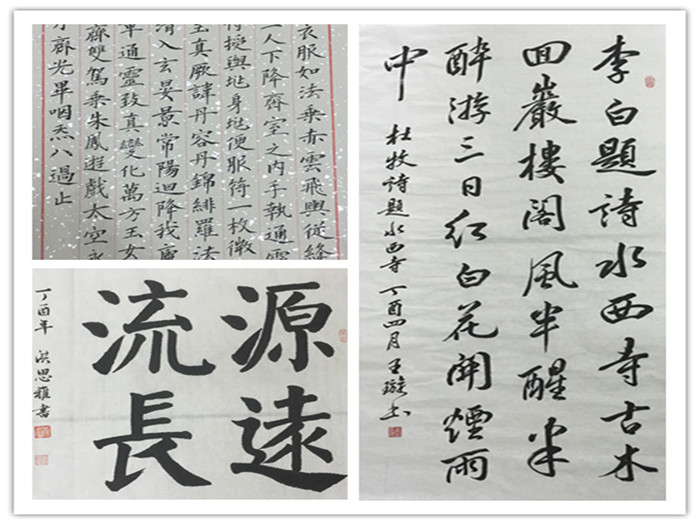 衣服如法乘赤雲飛輿從絳
人下降齋室之内手執通靈
符授與兆身兆便服符一枚微
玉真厥諱丹容丹錦緋羅法
清入玄晏景常陽迴降我
單通靈致真變化萬方玉女
齋雙駕乘朱鳳遊戲太空永
齊光畢咽炁八過止
源遠
流長
丁酉年 洪思雅書
李白題詩水西寺古木
回巖樓閣風半醒半
醉游三日红白花開煙雨
中
杜牧詩題水西寺 丁酉四月 王璇书